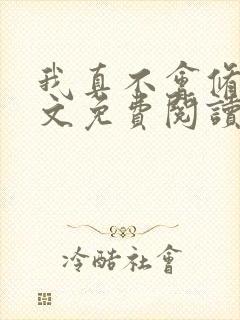 我真不會脩
文免費閱讀
冷酷社會